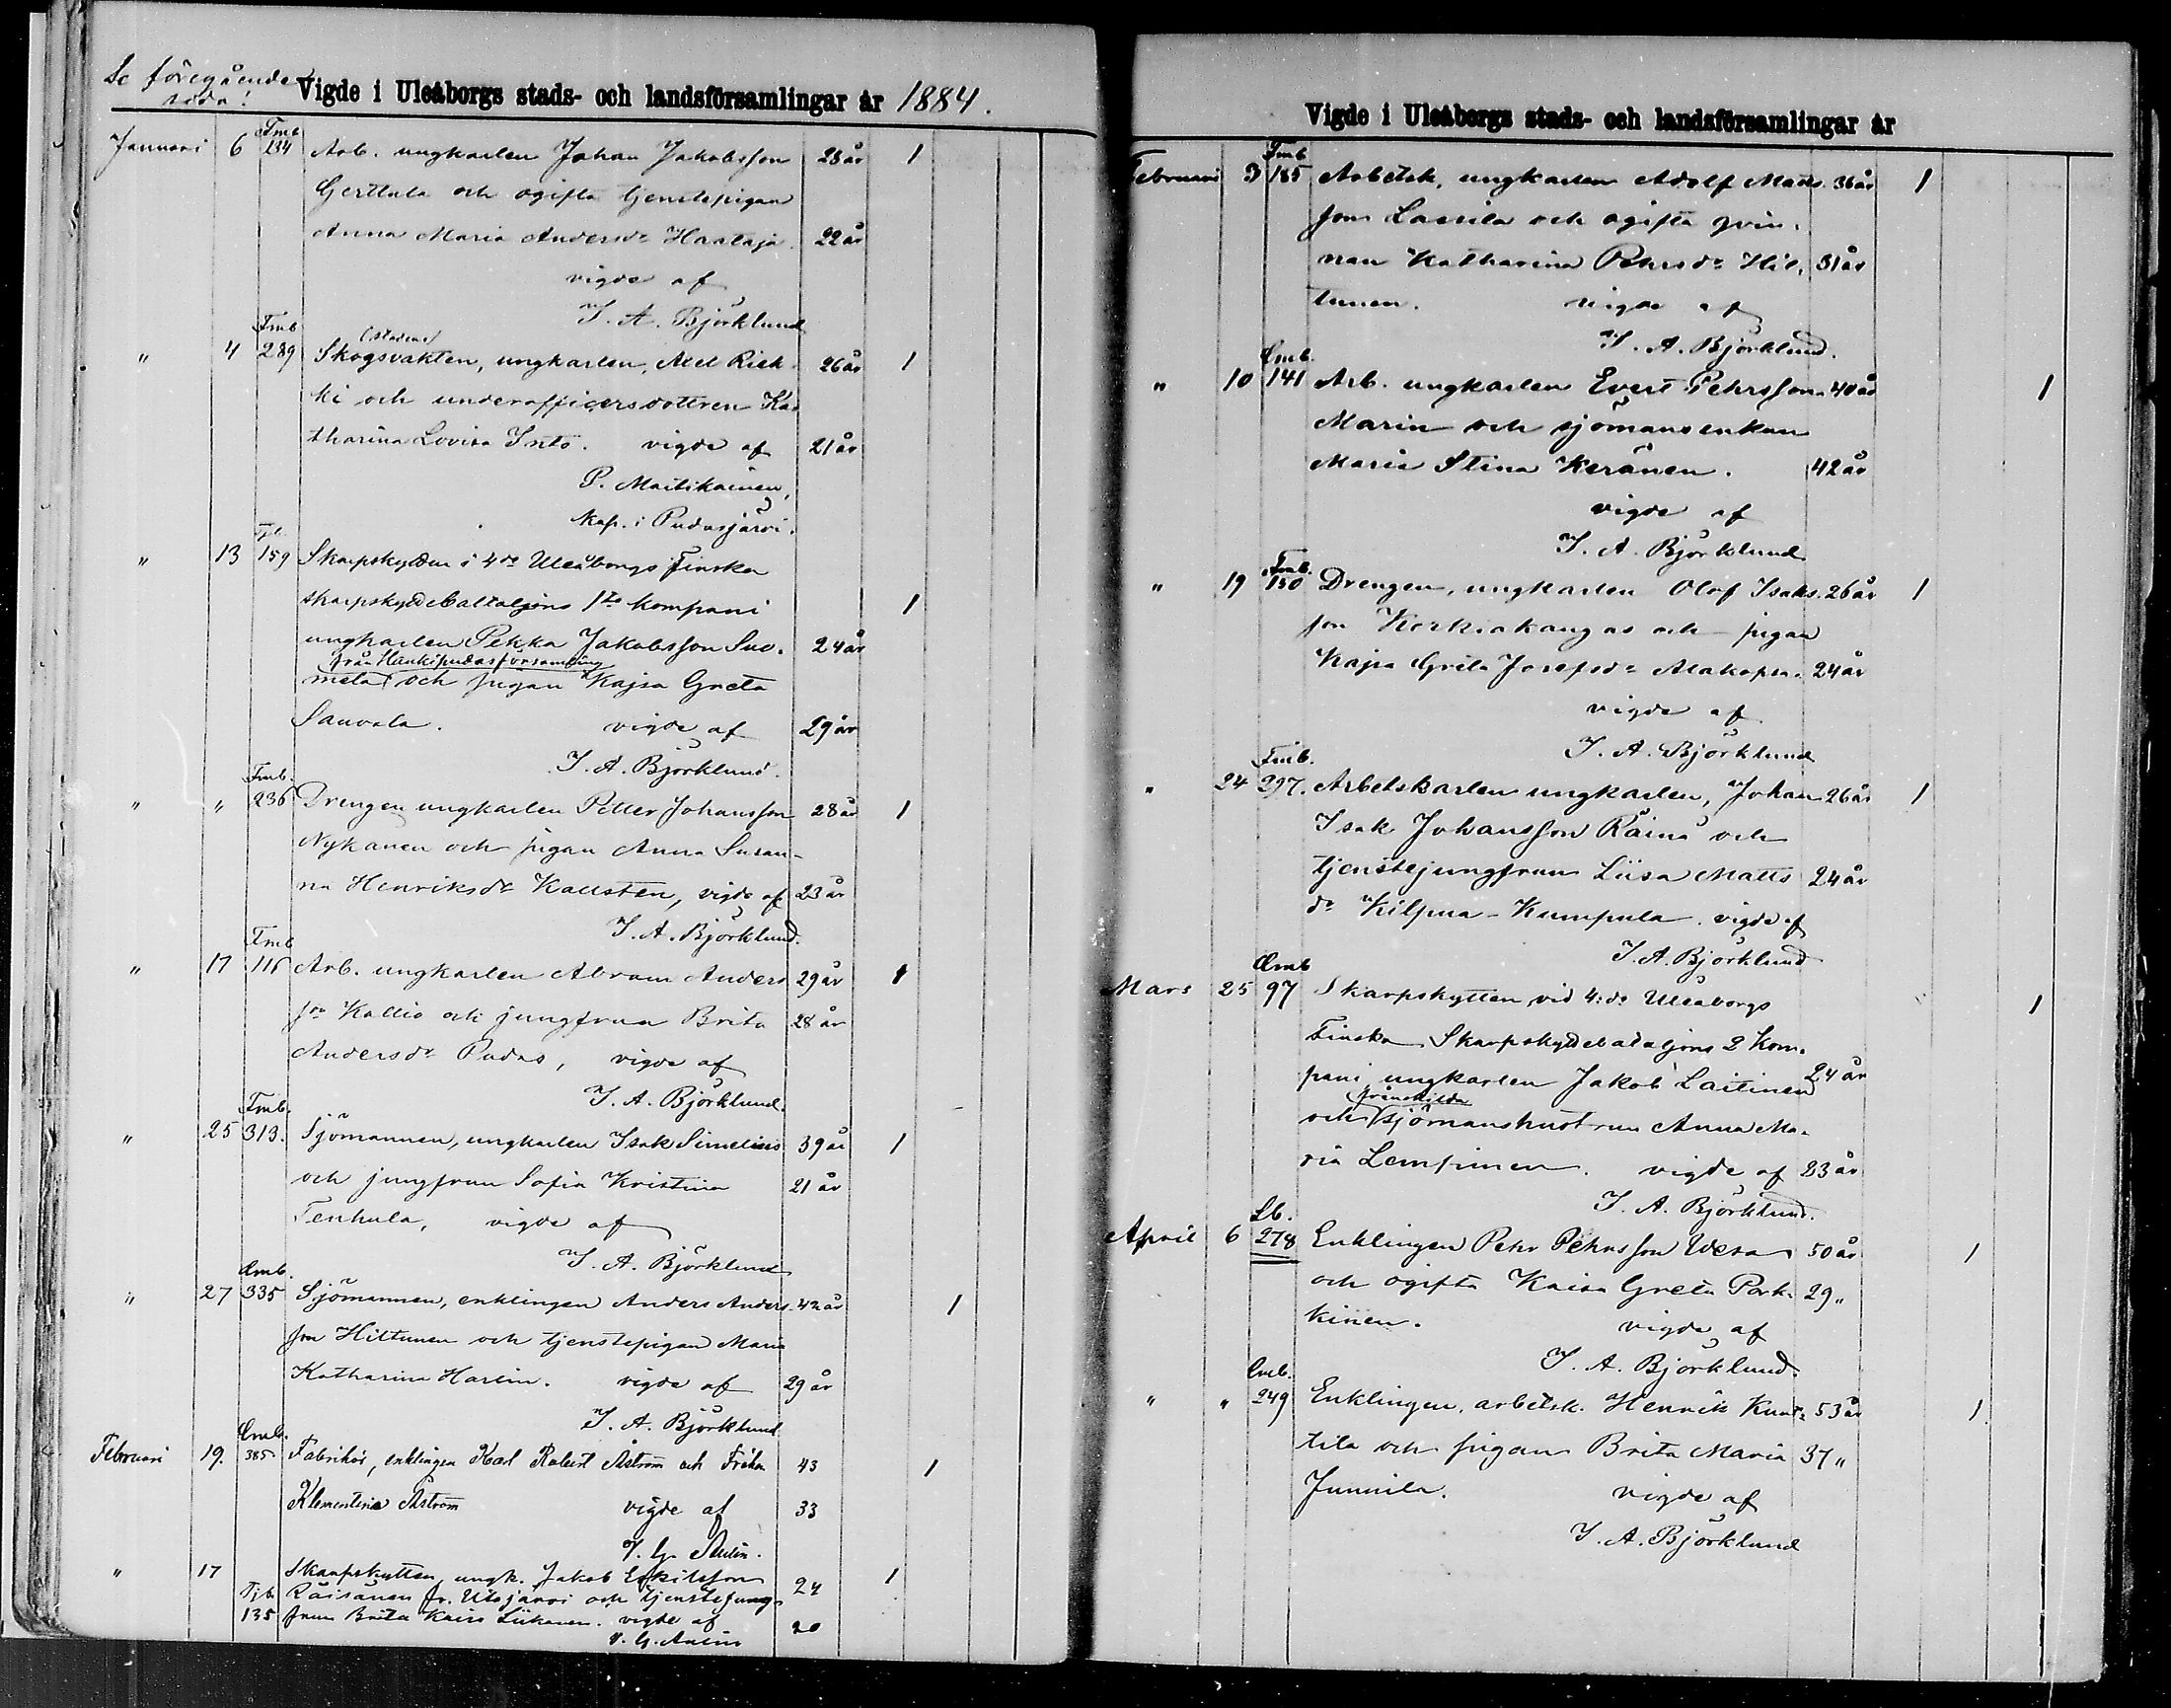 Se föregående
sida!
Vigde i Uleåborgs stads- och landsförsamlingar år 1884.
Fmb
Januari 6 134 Arb. ungkarlen Johan Jakobsson 28 år 1
Gerttula och ogifta tjenstepigan
Anna Maria Andersdr Haataja. 22 år
vigde af
J. A. Björklund
Fmb (stadens)
" 4 289 Skogsvakten, ungkarlen, Axel Riek- 26 år 1
ki och underofficersdottren Ka-
tharina Lovisa Into. vigde af 21 år
P. Maitikainen,
Kap. i Pudasjärvi.
" 13 159 Skarpskytten i 4de Uleåborgs Finska
skarpskyttebataljons 1sta kompani 1
ungkarlen Pekka Jakobsson Suo- 24 år
från Haukipudas församling
mela och pigan Kajsa Greta
Sauvola. vigde af 29 år
J. A. Björklund.
Fmb.
" " 236 Drengen ungkarlen Petter Johansson 28 år 1
Nykänen och pigan Anna Susan-
na Henriksdr Kallsten, vigde af 23 år
J. A. Björklund.
Fmb
" 17 116 Arb. ungkarlen Abram Anders 29 år 1
son Kallio och jungfrun Brita 28 år
Andersdr Pudas, vigde af
J. A. Björklund.
Fmb.
" 25 313. Sjömannen, ungkarlen Isak Simelius 39 år 1
och jungfrun Sofia Kristina 21 år
Tenhula, vigde af
J. A. Björklund
Emb.
" 27 335 Sjömannen, enklingen Anders Anders- 42 år 1
son Hiltunen och tjenstepigan Maria
Katharina Harlin. vigde af 29 år
J. A. Björklund
Emb.
Februari 19. 385 Fabrikör, enklingen Karl Robert Åström och Fröken 43 1
Klementine Åström vigde af 33
V. G. Aulin.
" 17 Skarpskytten, ungk. Jakob Eskilsson 24 1
Tjb. Räisänen fr. Utajärvi och tjenstejung-
135 frun Brita Kaisa Liikanen. vigde af 20
V. G. Aulin
Vigde i Uleåborgs stads- och landsförsamlingar år
Fmb
Februari 3 185 Arbetsk. ungkarlen Adolf Mats- 36 år 1
son Lassila och ogifta qvin-
nan Katharina Pehrsdr Hil- 31 år
tunen. vigde af
J. A. Björklund.
Emb.
" 10 141 Arb. ungkarlen Evert Pehrsson 40 år 1
Marin och sjömansenkan
Maria Stina Keränen. 42 år
vigde af
J. A. Björklund
Fmb.
" 19 150 Drengen, ungkarlen Olof Isaks- 26 år 1
son Korkiakangas och pigan
Kajsa Greta Josefsdr Alakopsa. 24 år
vigde af
J. A. Björklund
Fmb.
" 24 297. Arbetskarlen ungkarlen, Johan 26 år 1
Isak Johansson Räinä och
tjenstejungfrun Liisa Matts 24 år
dr Kilpua-Kumpula. vigde af
J. A. Björklund
Emb
Mars 25 97 Skarpskytten vid 4:de Uleåborgs 1
Finska Skarpskyttebataljons 2 Kom-
pani ungkarlen Jakob Laitinen 24 år
frånskilda
och sjömanshustrun Anna Ma-
ria Lempinen. vigde af 23 år
J. A. Björklund.
Lb.
April 6 278 Enklingen Pehr Pehrsson Wesa 50 år 1
och ogifta Kaisa Greta Park- 29 "
kinen. vigde af
J. A. Björklund.
Emb.
" " 249 Enklingen, arbetsk. Henrik Kunt- 53 år 1
tila och pigan Brita Maria 37 "
Junnila. vigde af
J. A. Björklund